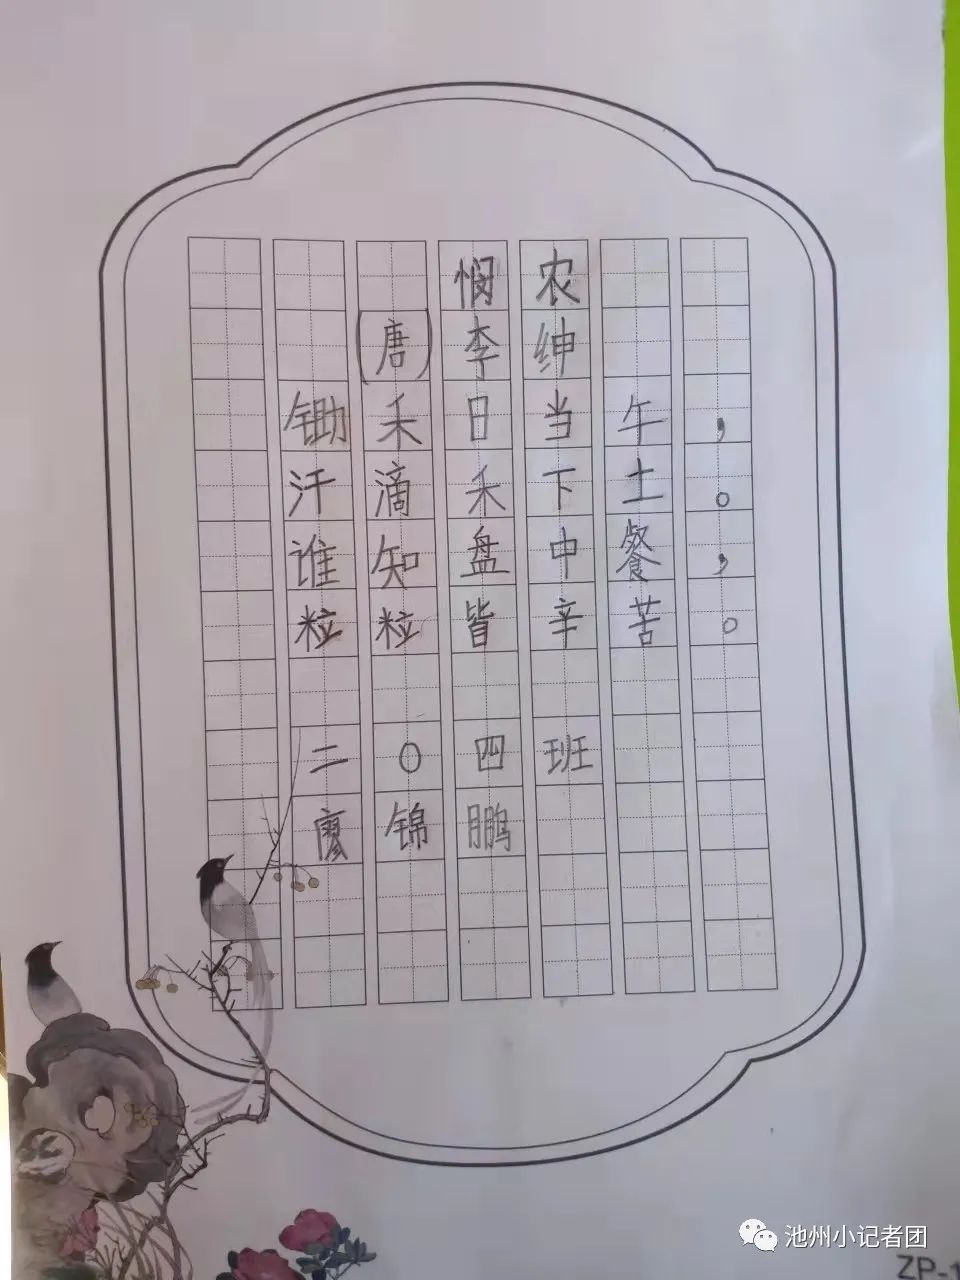 悯农
(唐)李绅
锄禾日当午，
汗滴禾下土。
谁知盘中餐，
粒粒皆辛苦。
二〇四班
廖锦鹏
池州小记者团
ZP-1